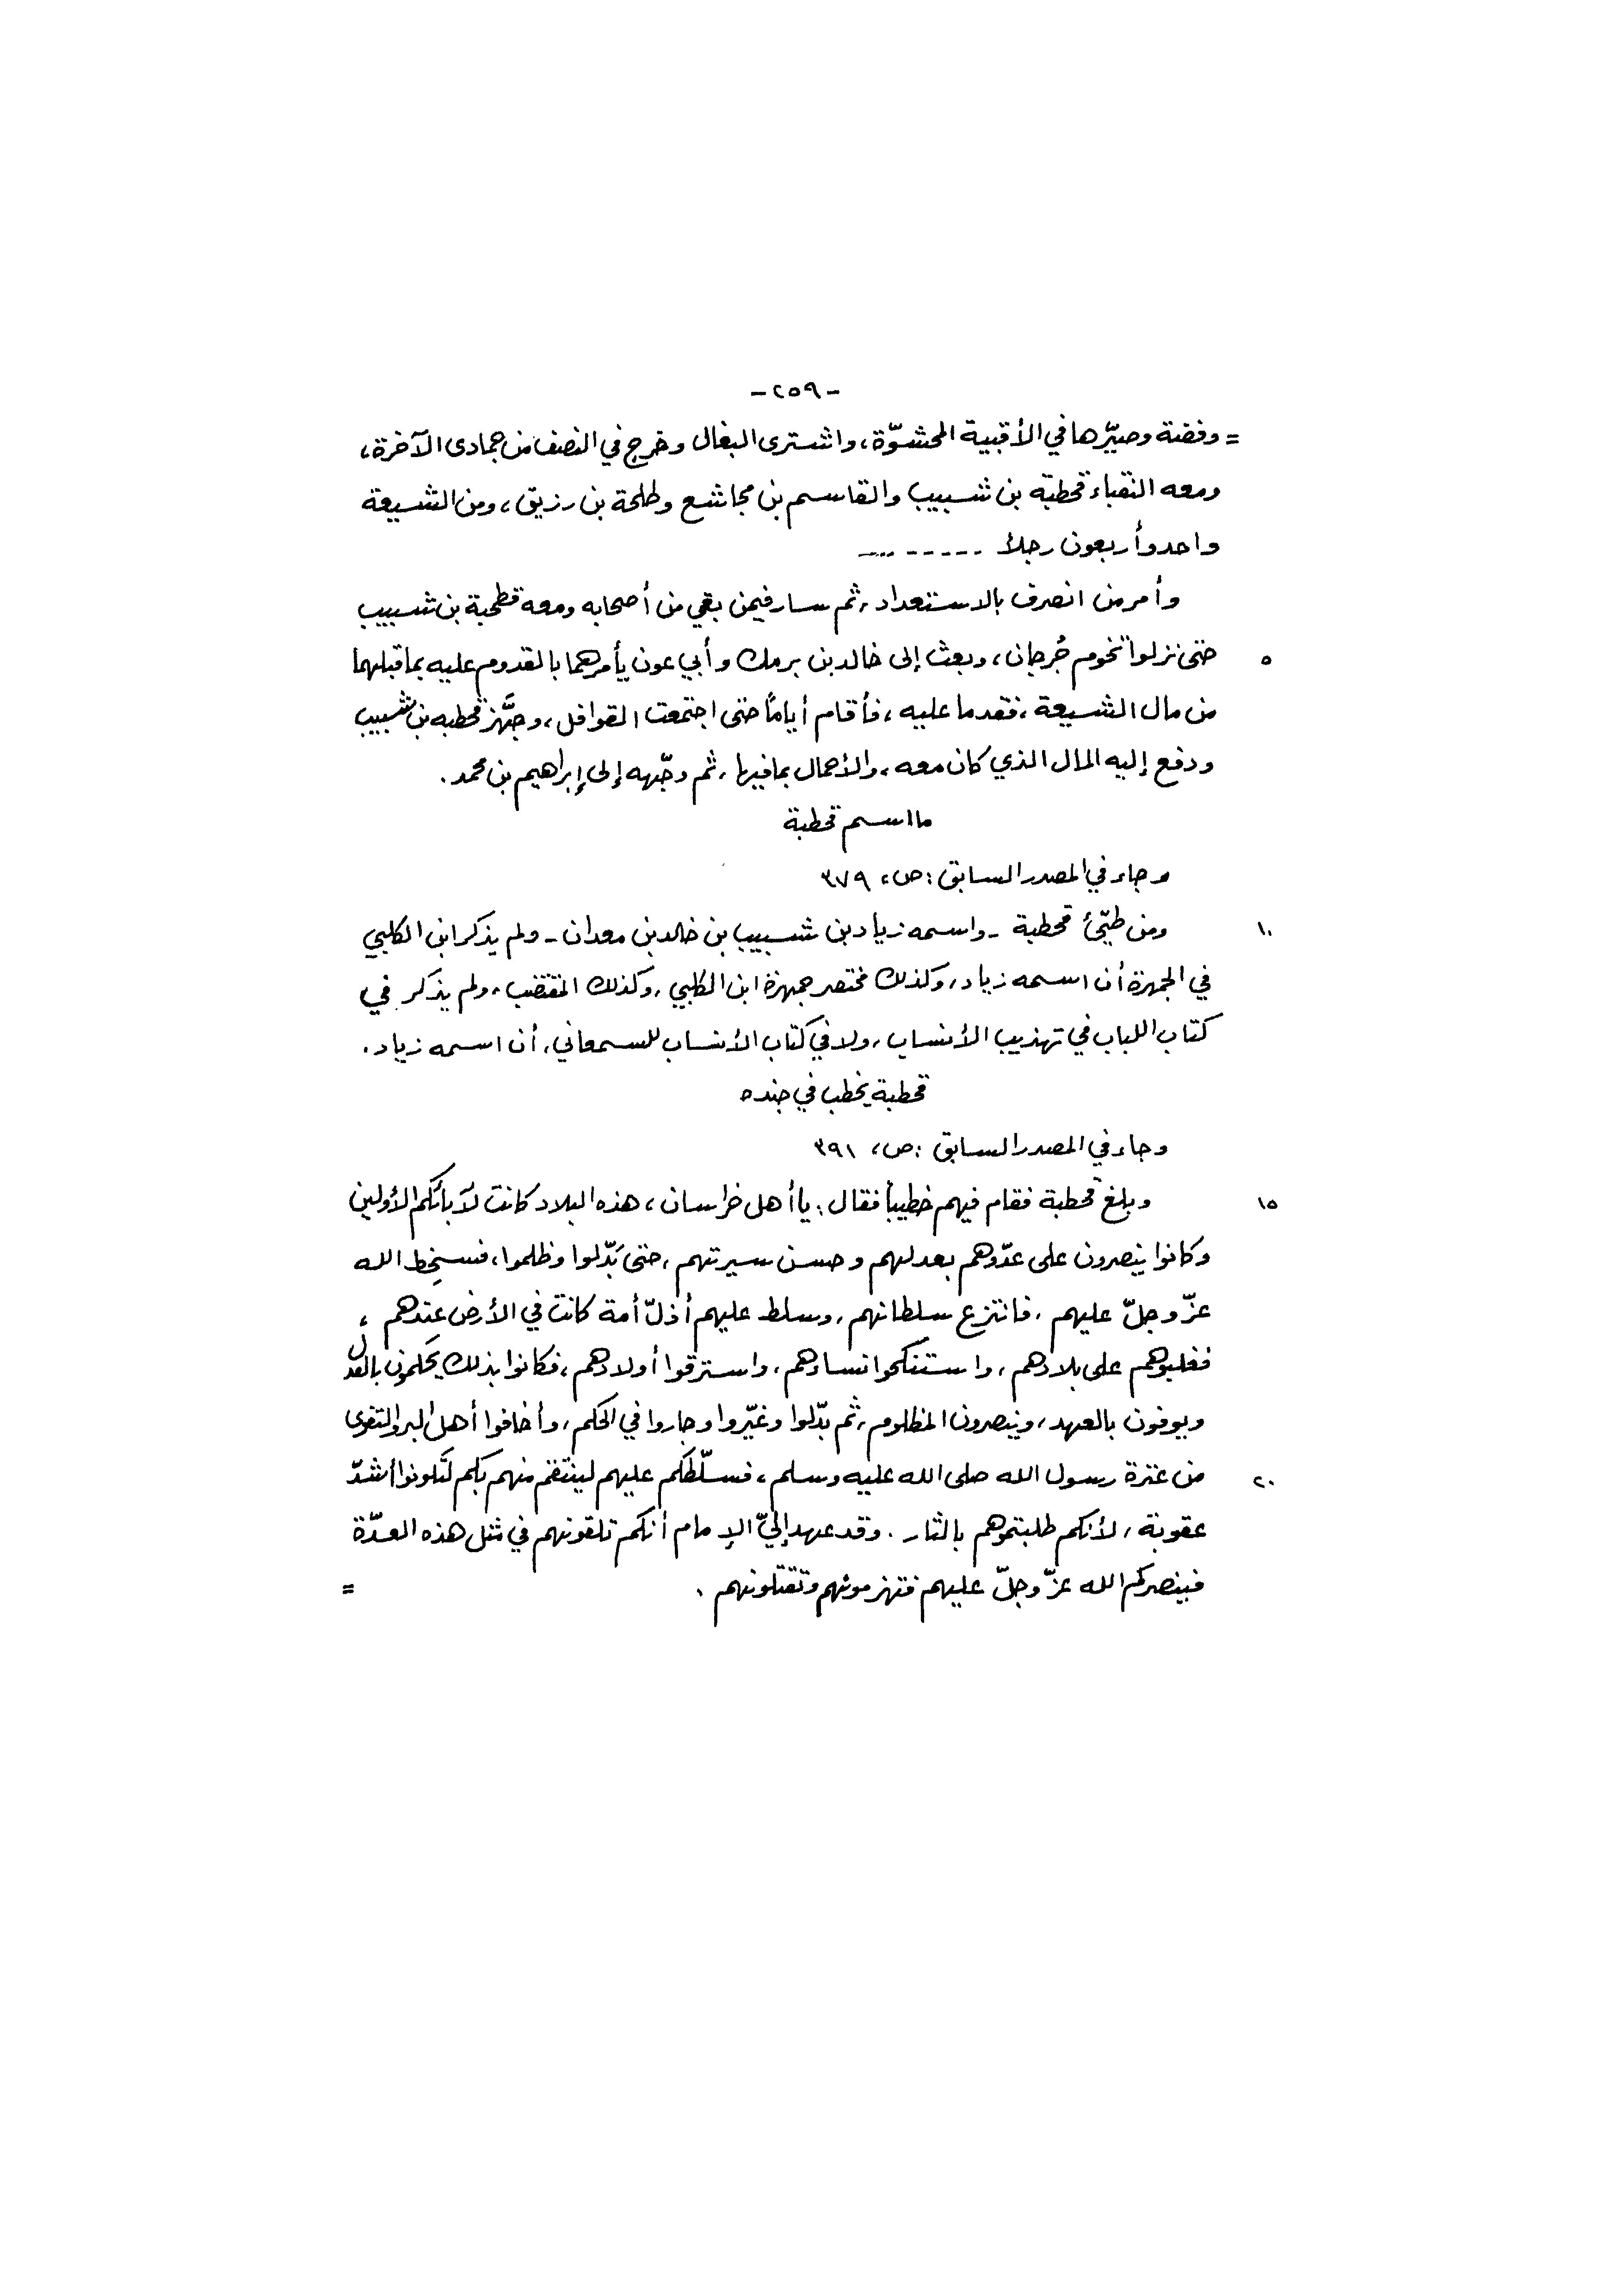 -٢٥٩-
= وفضة وصيّرها في الأقبية المحشوّة، واشترى البغال وخرج في النصف من جمادى الآخرة،
ومعه النقباء قحطبة بن شبيب والقاسم بن مجاشع وطلحة بن رزيق، ومن الشيعة
واحد وأربعون رجلاً - - - - - ---
وأمر من انصرف بالاستعداد، ثم سار فيمن بقي من أصحابه ومعه قطحبة بن شبيب
٥ حتى نزلوا تخوم جُرجان، وبعث إلى خالد بن برمك وأبي عون يأمرهما بالقدوم عليه بما قبلهما
من مال الشيعة، فقدما عليه، فأقام أياماً حتى اجتمعت القوافل، وجهَّز قحطبه بن شبيب
ودفع إليه المال الذي كان معه، والأحمال بما فيها، ثم وجّهه إلى إبراهيم بن محمد.
ما اسم قحطبة
وجاء في المصدر السابق: ص، ٣٧٩
١٠ ومن طيّئ قحطبة - واسمه زياد بن شبيب بن خالد بن معدان - ولم يذكر ابن الكلبي
في الجمهرة أن اسمه زياد، وكذلك مختصر جمهرة ابن الكلبي، وكذلك المقتضب، ولم يذكر في
كتاب اللباب في تهذيب الأنساب، ولا في كتاب الأنساب للسمعاني، أن اسمه زياد.
قحطبة يخطب في جنده
وجاء في المصدر السابق: ص، ٣٩١
١٥ وبلغ قحطبة فقام فيهم خطيباً فقال: يا أهل خراسان، هذه البلاد كانت لآبائكم الأولين
وكانوا ينصرون على عدّوهم بعدلهم وحسن سيرتهم، حتى بَدّلوا وظلموا، فسخِط الله
عزّ وجلّ عليهم، فانتزع سلطانهم، وسلط عليهم أذلّ أمة كانت في الأرض عندهم،
فغلبوهم على بلادهم، واستنكحوا نساءهم، واسترقوا أولادهم، فكانوا بذلك يحكمون بالعدل
ويوفون بالعهد، وينصرون المظلوم، ثم بدّلوا وغيّروا وجاروا في الحكم، وأخافوا أهل البر والتقوى
٢٠ من عترة رسول الله صلى الله عليه وسلم، فسلّطكم عليهم لينتقم منهم بكم لتكونوا أشدّ
عقوبة، لأنكم طلبتموهم بالثار. وقد عهد إليّ الإمام أنكم تلقونهم في مثل هذه العدّة
فينصركم الله عزّ وجلّ عليهم فتهزمونهم وتقتلونهم. =